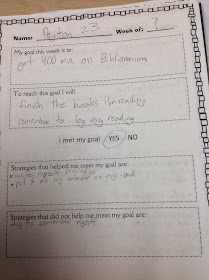 Name: Peyton 23 Week of: ?
My goal this week is to:
get 400 min. on Biblionasium
To reach this goal I will
finish the books I'm reading
remember to log my reading
I met my goal YES NO
Strategies that helped me meet my goal are:
• write myself reminders
• put it on my calendar on my ipad
Strategies that did not help me meet my goal are:
try to remember myself